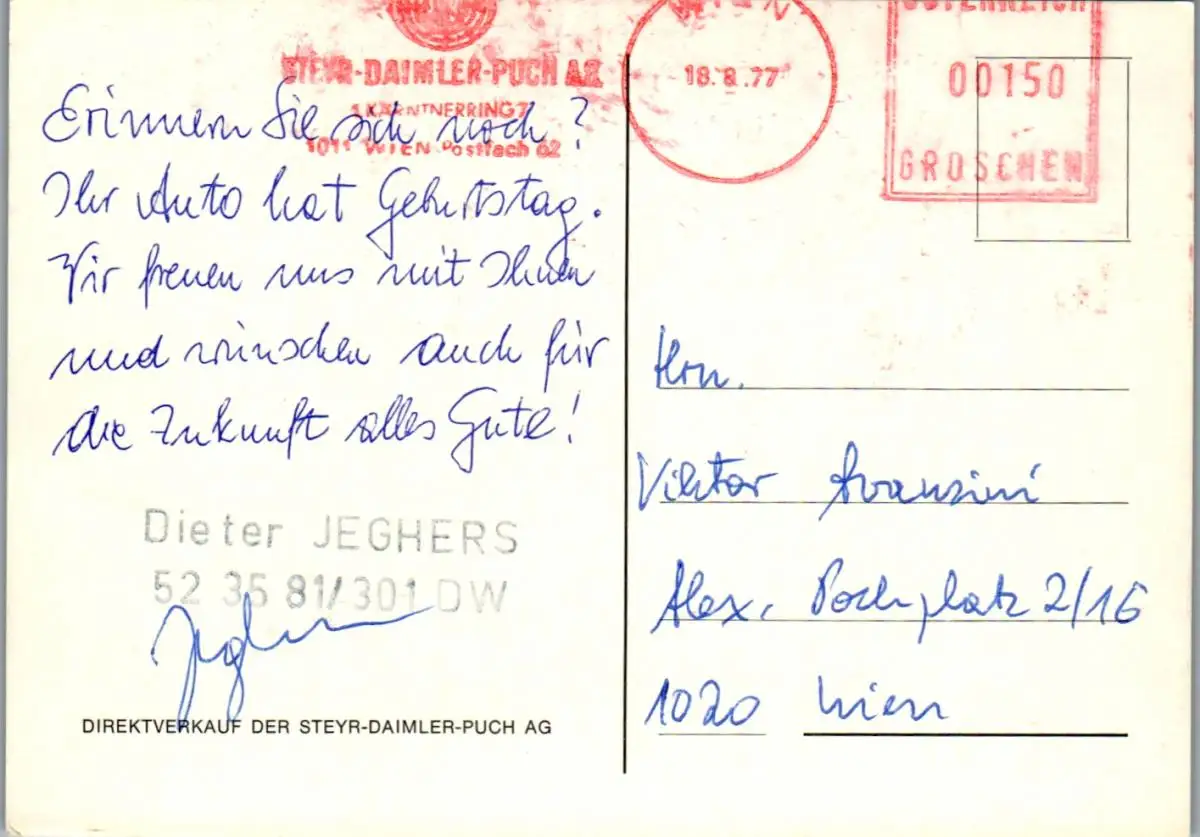 STEYR-DAIMLER-PUCH AG
1 KÄRNTNERRING 7
1011 WIEN Postfach 62
WIEN
18.8.77
ÖSTERREICH
00150
GROSCHEN
Erinnern Sie sich noch?
Ihr Auto hat Geburtstag.
Wir freuen uns mit Ihnen
und wünschen auch für
die Zukunft alles Gute!
Dieter JEGHERS
52 35 81/301 DW
DIREKTVERKAUF DER STEYR-DAIMLER-PUCH AG
Hrn.
Viktor Avanzini
Alex. Pochplatz 2/16
1020 Wien